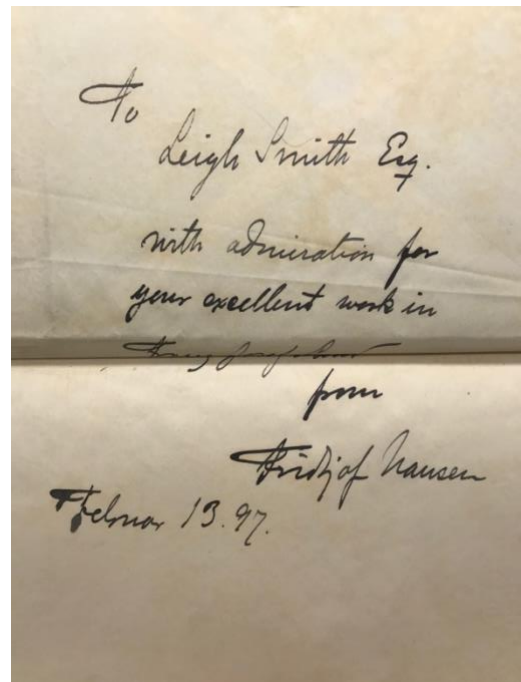 To
Leigh Smith Esq.
with admiration for
your excellent work in
from
Fridtjof Nansen
Februar 13. 97.